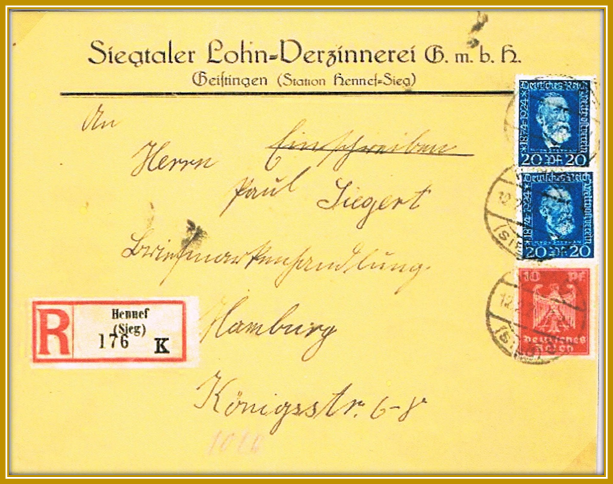 Siegtaler Lohn-Verzinnerei G. m. b. H.
Geistingen (Station Hennef-Sieg)
An
Einschreiben
Herrn
Paul Siegert
Briefmarkenhandlung.
Hamburg
Königsstr. 6-8
R
Hennef
(Sieg)
176 K
Deutsches Reich
1874-1924
Weltpostverein
20 PF 20
Deutsches Reich
1874-1924
Weltpostverein
20 PF 20
10 Pf
Deutsches
Reich
12.
(SIEG)
12.
(SIEG)